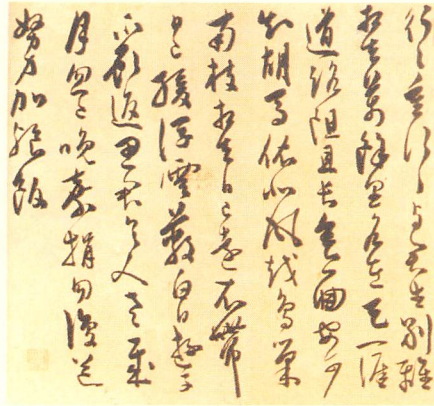 行々重行々與君生別離
相去萬餘里各在天一涯
道路阻且長會面安可
知胡馬依北風越鳥巢
南枝相去日已遠衣帶
日已緩浮雲蔽白日遊子
不顧返思君令人老歲
月忽已晚棄捐勿復道
努力加餐飯